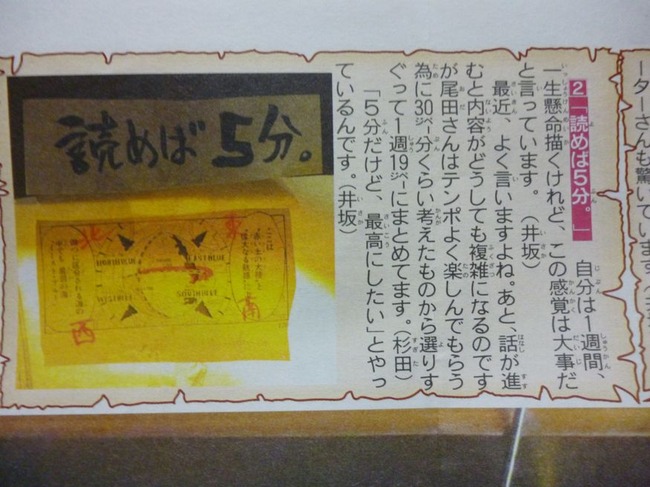 ーターさんも驚いています
2「読めば5分。」 自分は1週間、
一生懸命描くけれど、この感覚は大事だ
と言っています。(井坂)
最近 よく言いますよね。あと、話が進
むと内容がどうしても複雑になるのです
が尾田さんはテンポよく楽しんでもらう
為に30ページ分くらい考えたものから選りす
ぐって1週19ページにまとめてます。(杉田)
「5分だけど、最高にしたい」とやっ
ているんです。(井坂)
読めば5分。
北
東
西
南